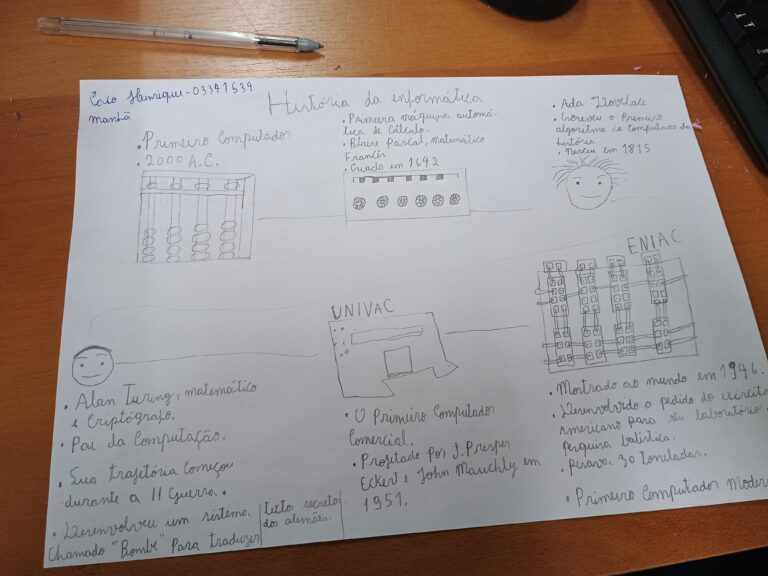 Caio Henrique - 03341639
manhã
História da informática
• Primeiro Computador
• 2000 A.C.
• Primeira máquina automá-
tica de Cálculo.
• Blaise Pascal, matemático
Francês
• Criado em 1642
• Ada Lovelace
• Escreveu o Primeiro
algoritmo de Computado da
história
• Nasceu em 1815
• Alan Turing, matemático
e Criptógrafo.
• Pai da Computação.
• Sua trajetória Começou
durante a II Guerra.
• Desenvolveu um sistema
Chamado "Bombe" Para traduzir
texto secreto
dos alemães.
UNIVAC
• O Primeiro Computador
Comercial.
• Projetado Por J. Presper
Eckert e John Mauchly em
1951.
ENIAC
• Mostrado ao mundo em 1946.
• Desenvolvido a pedido do exército
Americano para seu laboratório
Pesquisa balística.
• Pesava 30 Toneladas.
• Primeiro Computador Moder